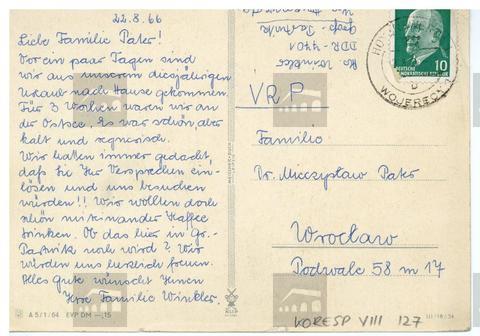 22.8.66
Liebe Familie Pater!
Vor ein paar Tagen sind
wir aus unserem diesjährigen
Urlaub nach Hause gekommen.
Für 3 Wochen waren wir an
der Ostsee. Es war schön, aber
kalt und regnerisch.
Wir hatten immer gedacht,
daß Sie Ihr Versprechen ein-
lösen und uns besuchen
würden!! Wir wollten doch
schön miteinander Kaffee
trinken. Ob das hier in Gr.-
Partwitz noch wird? Wir
würden uns herzlich freuen.
Alles Gute wünscht Ihnen
Ihre Familie Winkler.
A 5/1/64 EVP DM —,15
Winkler
DDR 7701
Groß-Partwitz
VRP
Familie
Dr. Mieczysław Pater
Wrocław
Podwale 58 m 17
10
DEUTSCHE
DEMOKRATISCHE REPUBLIK
WOJERECY
III/18/34
KORESP VIII 127